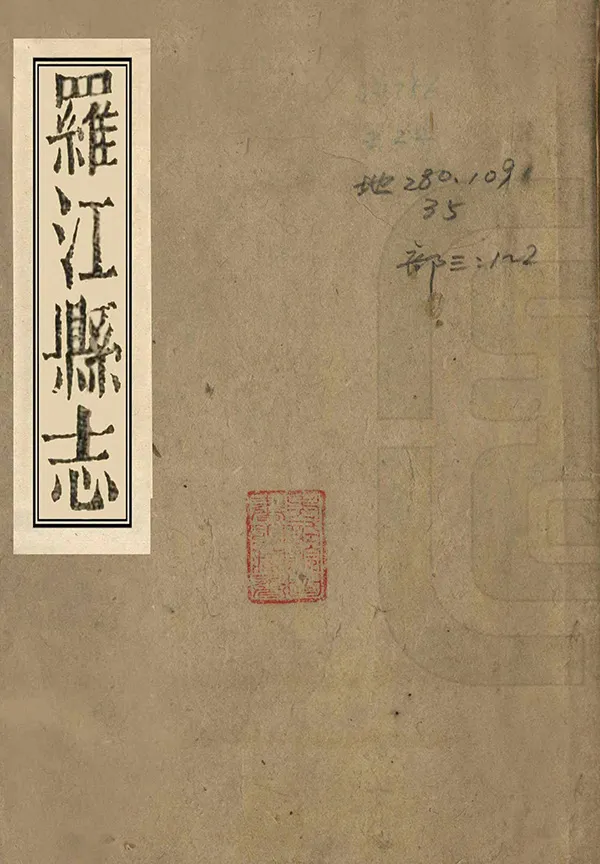 羅江縣志
地280.109
35
部三:1~2